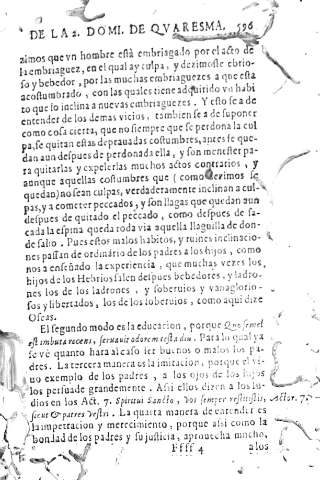 DE LA 2. DOMI. DE QVARESMA. 596
zimos que vn hombre està embriagado por el acto de
la embriaguez, en el qual ay culpa, y dezimosle ebrio-
so y bebedor, por las muchas embriaguezes a que esta
acostumbrado, con las quales tiene adquirido vn habi
to que lo inclina a nuevas embriaguezes. Y esto se a de
entender de los demas vicios, tambien se a de suponer
como cosa cierta, que no siempre que se perdona la cul
pa, se quitan estas deprauadas costumbres, antes se que-
dan aun despues de perdonada ella, y son menester pa-
ra quitarlas y expelerlas muchos actos contrarios, y
aunque aquellas costumbres que (como dezimos se
quedan) no sean culpas, verdaderamente inclinan a cul-
pas, y a cometer peccados, y son llagas que quedan aun
despues de quitado el peccado, como despues de sa-
cada la espina queda toda via aquella llaguilla de don-
de salio. Pues estos malos habitos, y ruines inclinacio-
nes passan de ordinario de los padres a los hijos, como
nos a enseñado la experiencia, que muchas vezes los
hijos de los Hebrios salen despues bebedores, y ladro-
nes los de los ladrones, y soberuios y vanaglorio-
sos y libertados, los de los soberuios, como aqui dize
Oseas.
El segundo modo es la educacion, porque Quo semel
est imbuta recens, seruauit odorem testa diu. Para lo qual ya
se vè quanto hara al caso ser buenos o malos los pa-
dres. La tercera manera es la imitacion, porque el vi-
uo exemplo de los padres, a los ojos de los hijos
los persuade grandemente. Assi ellos dizen a los Iu-
dios en los Act. 7. Spiritui Sancto, vos semper resistitis, Actor. 7.
sicut & patres vestri. La quarta manera de entender es
la impetracion y merecimiento, porque assi como la
bondad de los padres y su justicia, aprouecha mucho,
Ffff 4 a los